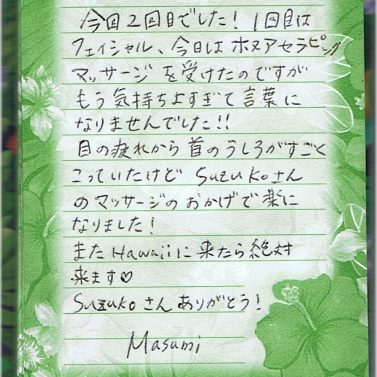 今回2回目でした！1回目は
フェイシャル、今日はホヌアセラピック
マッサージを受けたのですが
もう気持ちよすぎて言葉に
なりませんでした!!
目の疲れから首のうしろがすごく
こっていたけどSuzukoさん
のマッサージのおかげで楽に
なりました！
またHawaiiに来たら絶対
来ます♡
Suzukoさんありがとう！
Masumi